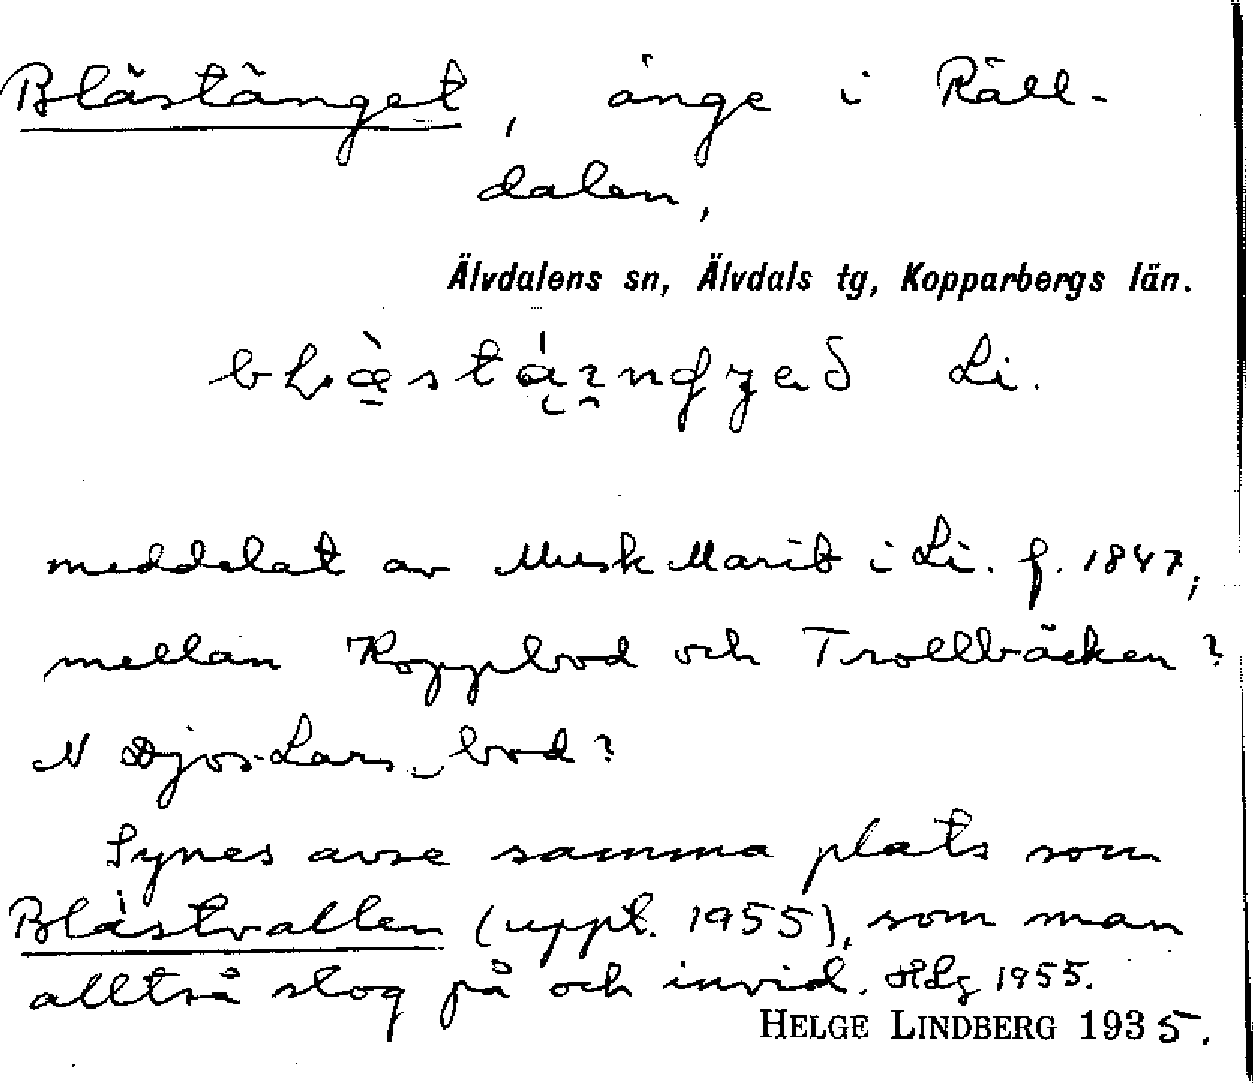 Blästänget, änge i Räll-
dalen,
Älvdalens sn, Älvdals tg, Kopparbergs län.
Li.
meddelat av Musk Marit i Li. f. 1847,
mellan Koppbod och Trollbäcken?
N Djos-Lars bod?
Synes avse samma plats som
Blästvallen (uppt. 1955), som man
alltså slog på och invid. HLg 1955.
HELGE LINDBERG 1935.